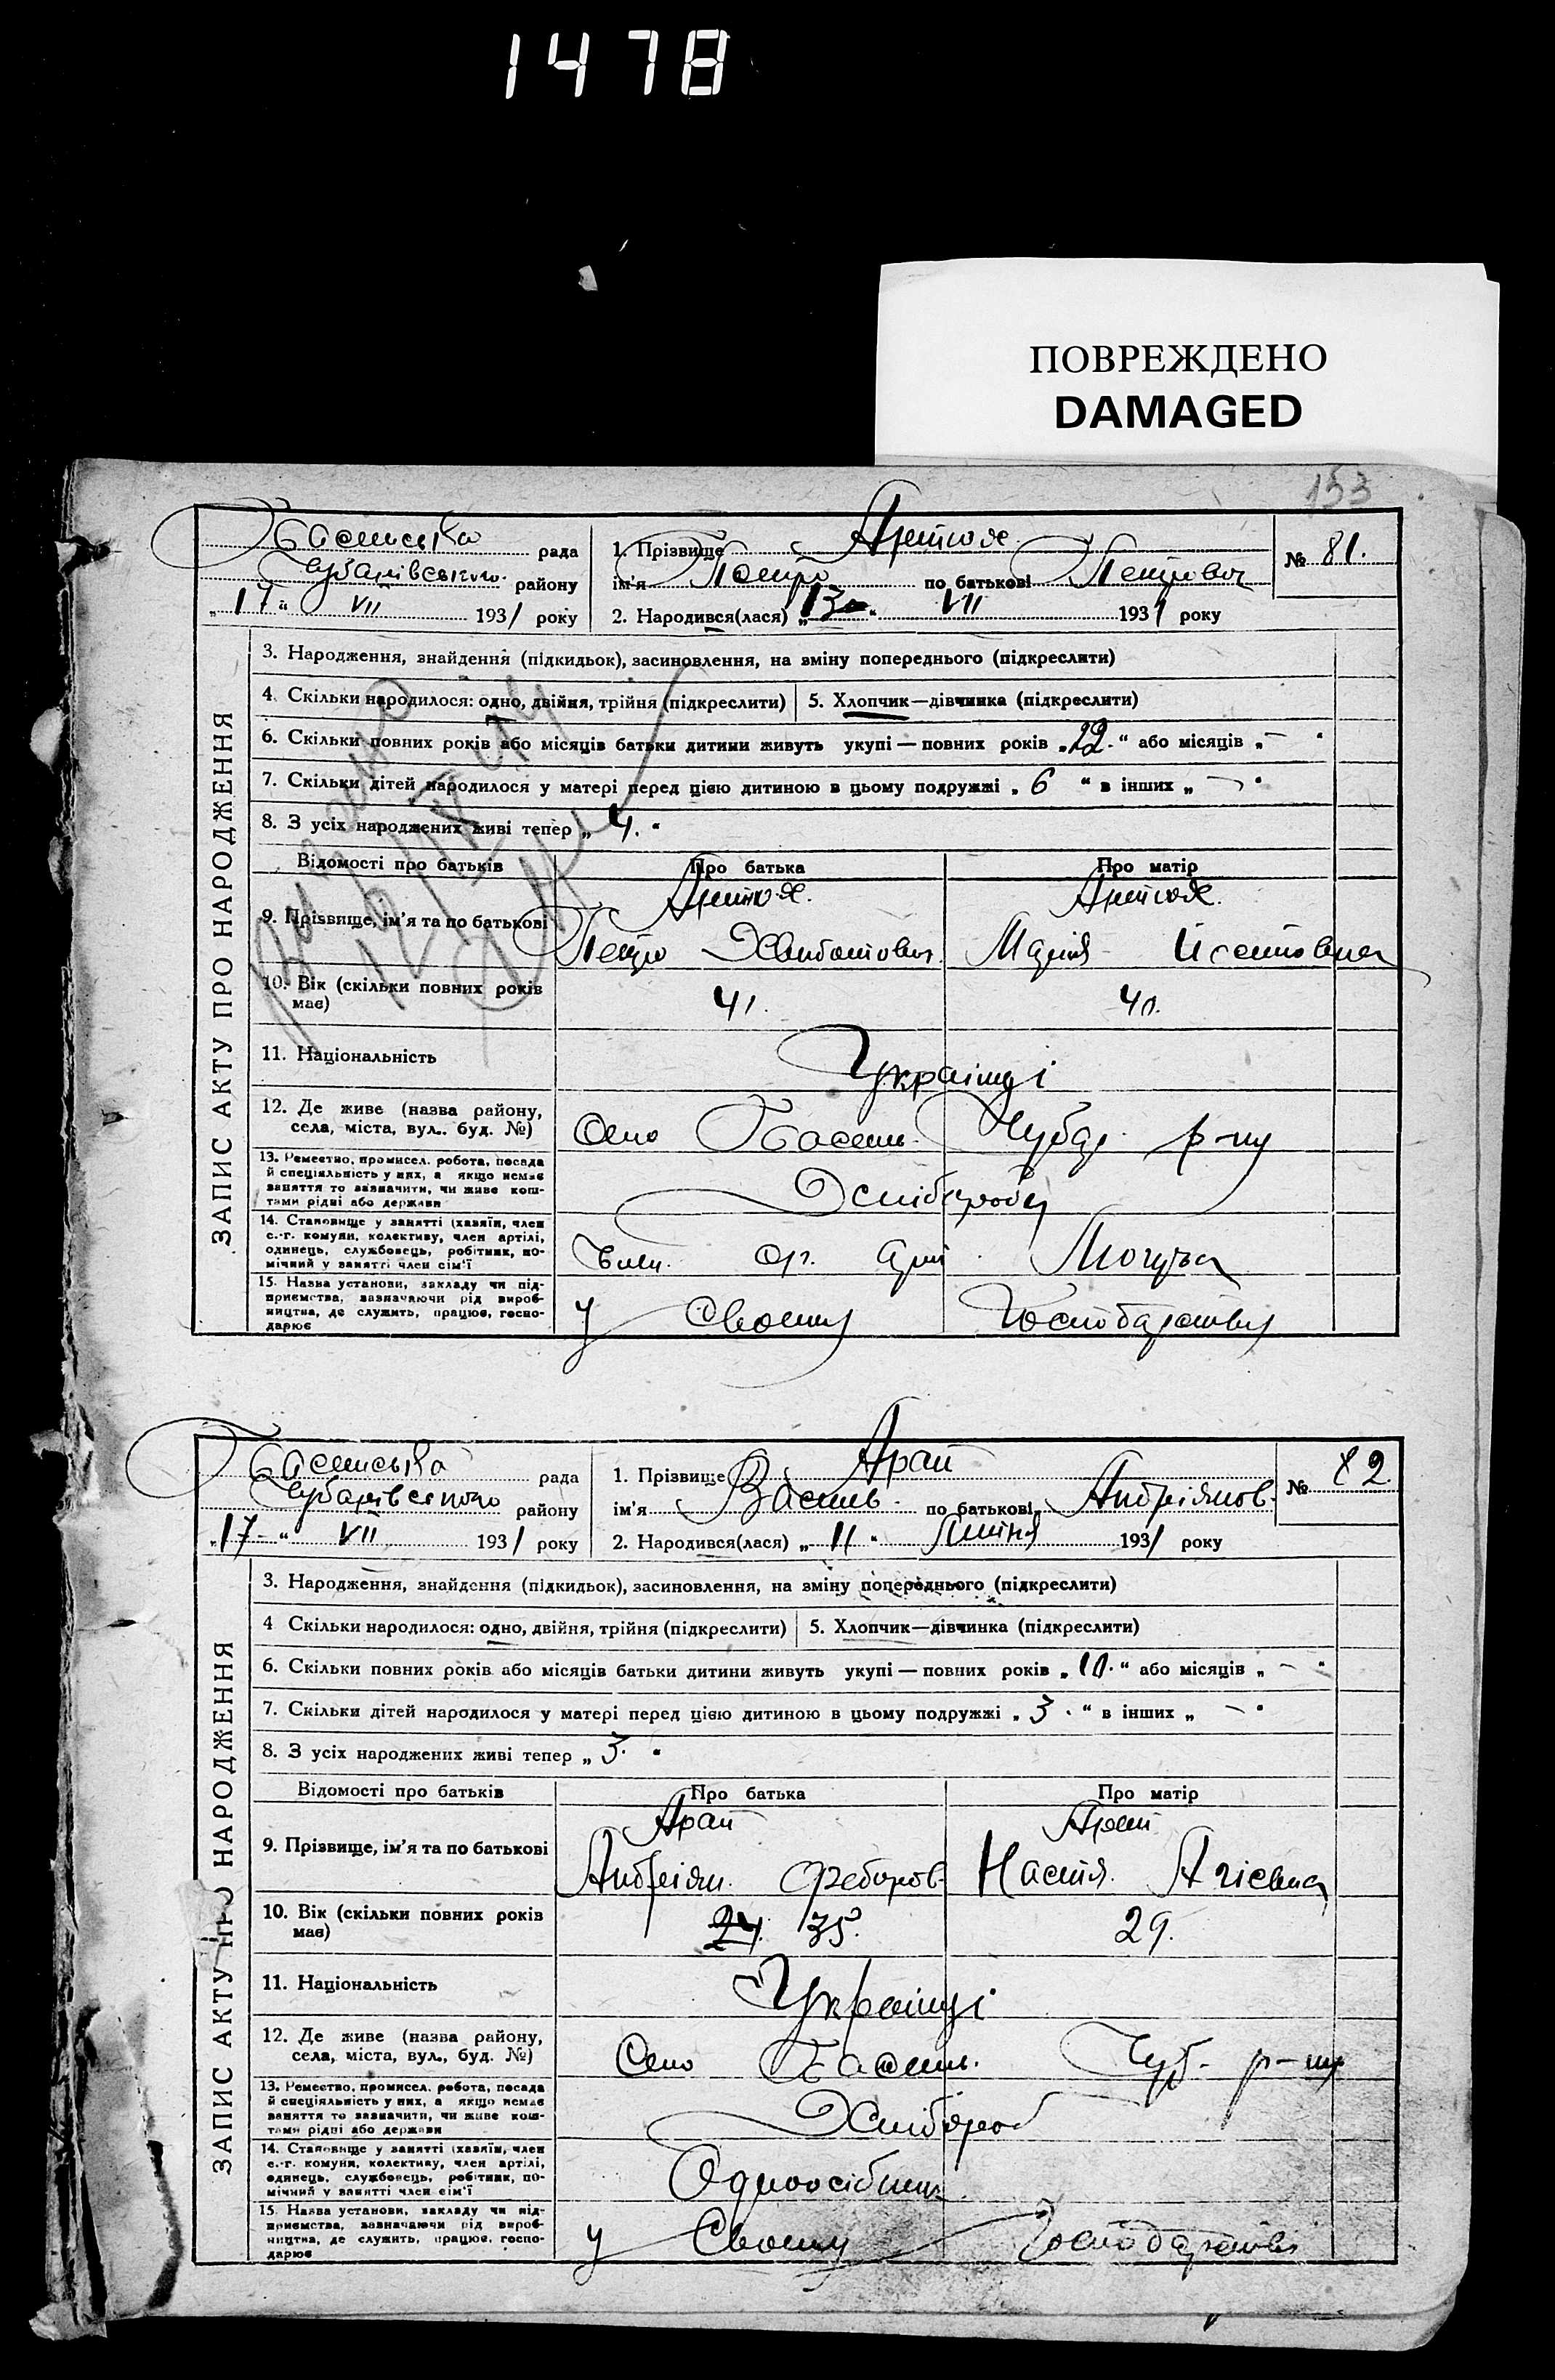 1478
ПОВРЕЖДЕНО
DAMAGED
153
Басанська рада
Чубарівського району
„17“ VII 1931 року
1. Прізвище
ім'я Петро по батькові Петрович
2. Народився(лася) „13“ VII 1931 року
№ 81.
ЗАПИС АКТУ ПРО НАРОДЖЕННЯ
3. Народження, знайдення (підкидьок), засиновлення, на зміну попереднього (підкреслити)
4. Скільки народилося: одно, двійня, трійня (підкреслити)
5. Хлопчик—дівчинка (підкреслити)
6. Скільки повних років або місяців батьки дитини живуть укупі — повних років „22.“ або місяців „—“
7. Скільки дітей народилося у матері перед цією дитиною в цьому подружжі „6“ в інших „—“
8. З усіх народжених живі тепер „4.“
Відомості про батьків Про батька Про матір
9. Прізвище, ім'я та по батькові
Петро Марія
10. Вік (скільки повних років має) 41. 40.
11. Національність Українці
12. Де живе (назва району, села, міста, вул.. буд. №) Село Басань. Чубар. р-ну
13. Ремество, промисел. робота, посада
й спеціяльність у них, а якщо немає
заняття то зазначити, чи живе кош-
тами рідні або держави
Хліборобы
14. Становище у занятті (хазяїн, член
с.-г. комуни, колективу, член артілі,
одинець, службовець, робітник, по-
мічний у занятті член сім'ї
Член. с/г. Арт
15. Назва установи, закладу чи під-
приємства, зазначаючи рід вироб-
ництва, де служить, працює, госпо-
дарює
У Своему Господарстви
Басанська рада
Чубарівського району
„17“ VII 1931 року
1. Прізвище Арап
ім'я Василь. по батькові Андріянов.
2. Народився(лася) „11“ Липня 1931 року
№ 82.
ЗАПИС АКТУ ПРО НАРОДЖЕННЯ
3. Народження, знайдення (підкидьок), засиновлення, на зміну попереднього (підкреслити)
4 Скільки народилося: одно, двійня, трійня (підкреслити)
5. Хлопчик—дівчинка (підкреслити)
6. Скільки повних років або місяців батьки дитини живуть укупі — повних років „10.“ або місяців „—“
7. Скільки дітей народилося у матері перед цією дитиною в цьому подружжі „3.“ в інших „—“
8. З усіх народжених живі тепер „3.“
Відомості про батьків Про батька Про матір
Арап Арап
9. Прізвище, ім'я та по батькові
Андріян. Федоров. Настя.
10. Вік (скільки повних років має) 24. 35. 29.
11. Національність Українці
12. Де живе (назва району, села, міста, вул., буд. №) Село Басань. Чуб- р-ну
13. Ремество, промисел. робота, посада
й спеціяльність у них, а якщо немає
заняття то зазначити, чи живе кош-
тами рідні або держави
Хлібороб
14. Становище у занятті (хазяїн, член
с.-г. комуни, колективу, член артілі,
одинець, службовець, робітник, по-
мічний у занятті член сім'ї
Одноосібник
15. Назва установи, закладу чи під-
приємства, зазначаючи рід вироб-
ництва, де служить, працює, госпо-
дарює
У Своему Господарстви